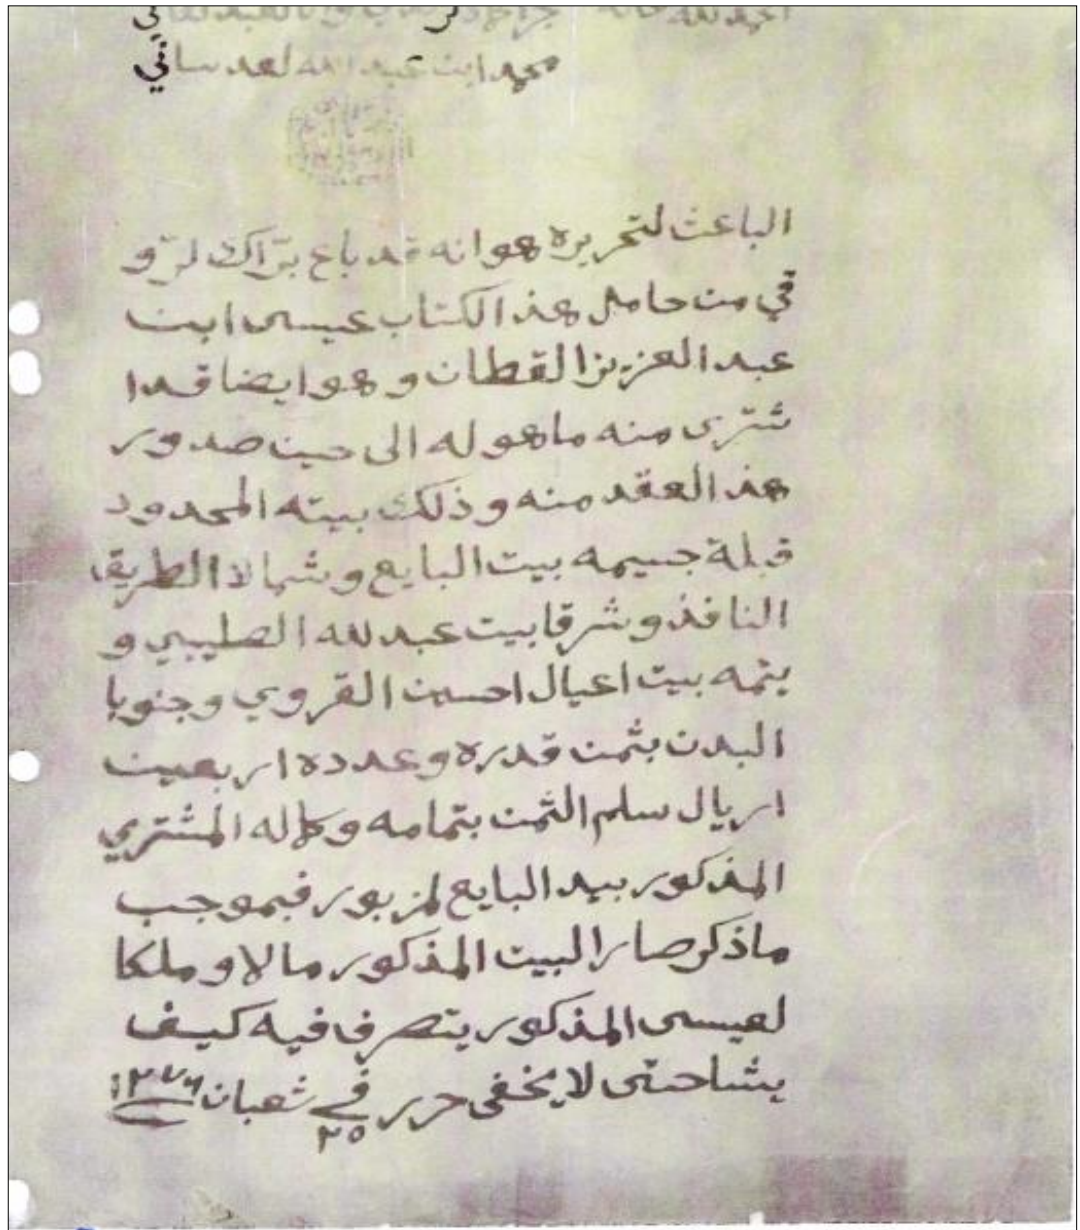 الحمد لله
محمد ابن عبد الله لعدساني
الباعث لتحريره هو انه قد باع برّاك لرّو
قي من حامل هذ الكتاب عيسى ابن
عبد العزيز القطان وهو ايضا قد ا
شترى منه ما هو له الى حين صدور
هذ العقد منه وذلك بيته المحدود
قبلة جسيمه بيت البايع وشمالا الطريق
النافذ وشرقا بيت عبد لله الطيبي و
يتمه بيت اعيال احسين القروي وجنوبا
البدن بثمن قدره وعدده اربعين
اريال سلم الثمن بتمامه وكماله المشتري
المذكور بيد البايع لمزبور فبموجب
ما ذكر صار البيت المذكور مالا وملكا
لعيسى المذكور يتصرف فيه كيف
يشا حتى لا يخفى حرر في ٢٥ شعبان ١٢٧٦